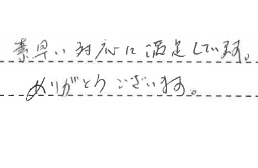 素早い対応に満足しています。
ありがとうございます。